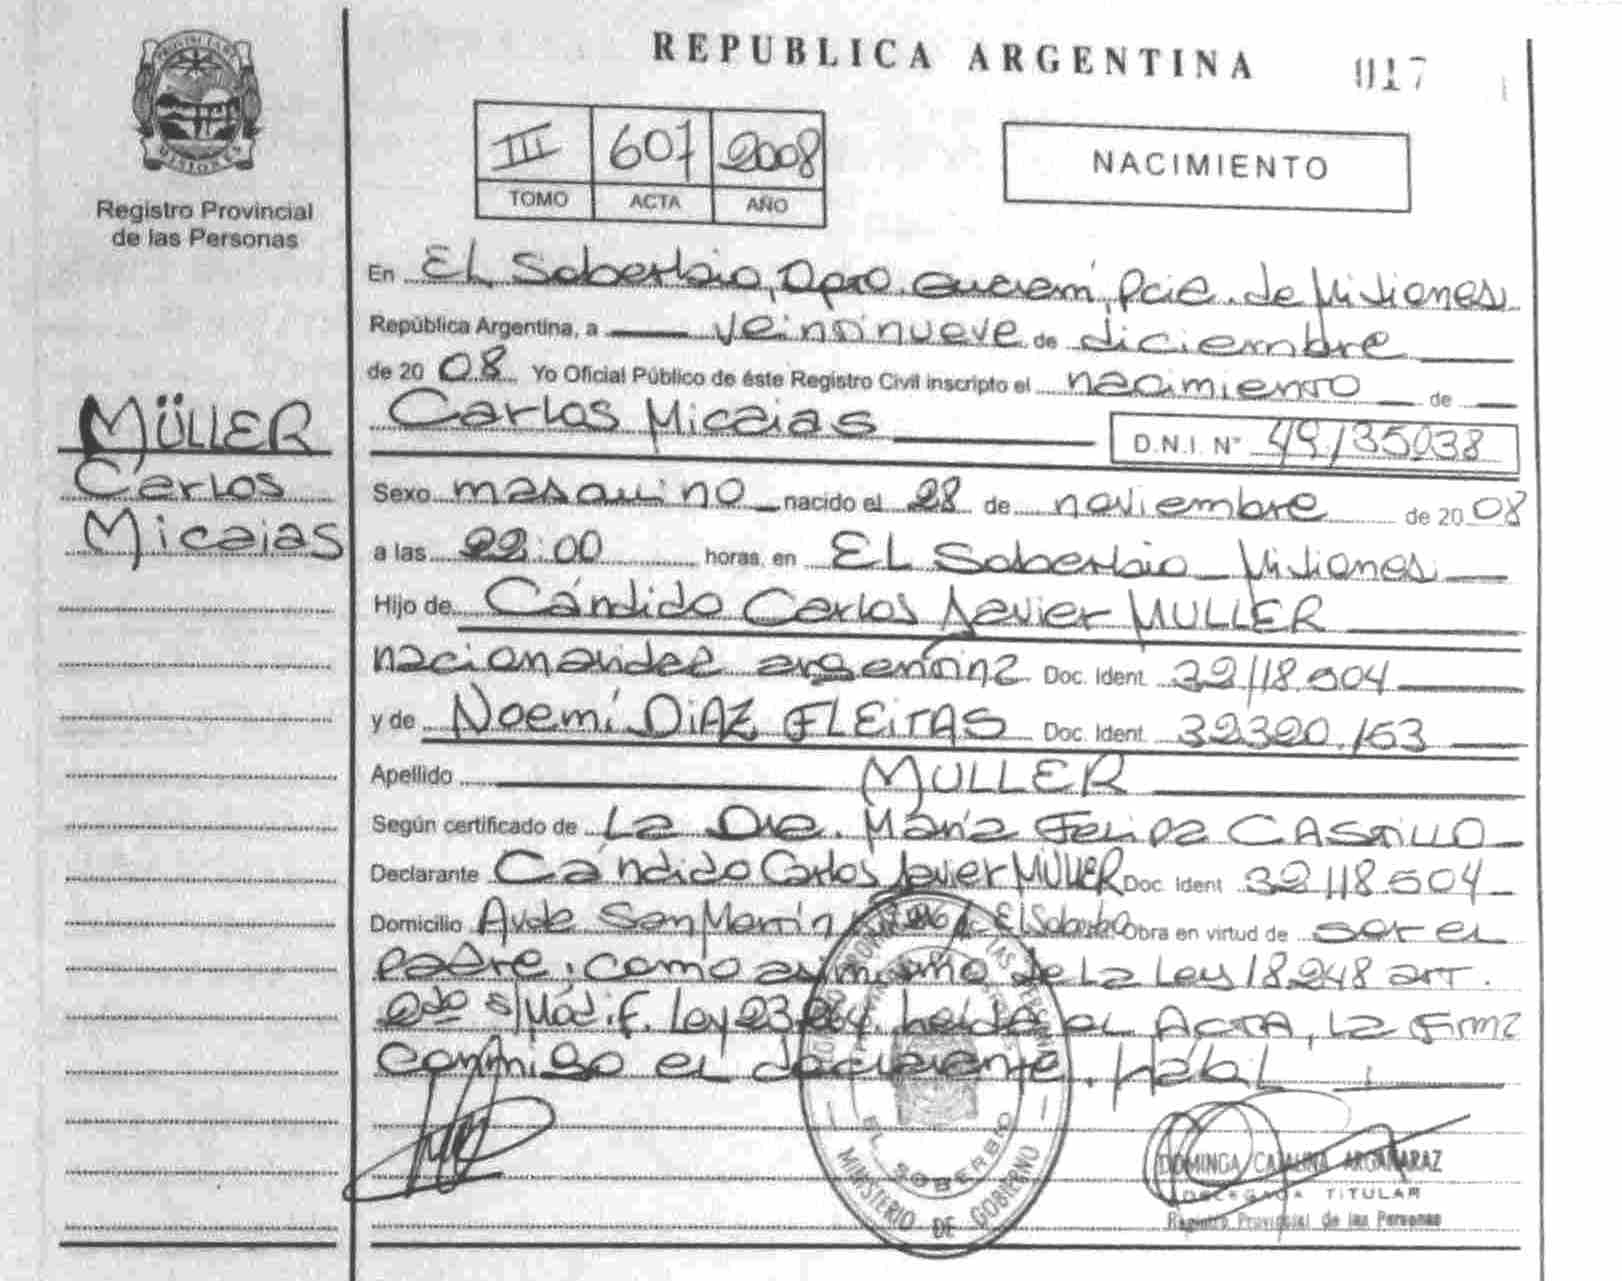 REPUBLICA ARGENTINA 017
PROVINCIA DE MISIONES
Registro Provincial
de las Personas
III 607 2008
TOMO ACTA AÑO
NACIMIENTO
En EL Soberbio, Dpto. Guaraní, Pcia. de Misiones
República Argentina, a veintinueve de diciembre
de 20 08 Yo Oficial Público de éste Registro Civil inscripto el nacimiento de
Carlos Micaias D.N.I. N° 49135038
MÜLLER
Carlos
Micaias
Sexo masculino nacido el 28 de noviembre de 20 08
a las 22:00 horas, en EL Soberbio Misiones
Hijo de Cándido Carlos Javier MULLER
nacionalidad argentina Doc. Ident. 32.118.504
y de Noemí DIAZ FLEITAS Doc. Ident. 32.320.153
Apellido MULLER
Según certificado de La Dra. María Felipa CASTILLO
Declarante Cándido Carlos Javier MÜLLER Doc. Ident 32.118.504
Domicilio Avda San Martín El Soberbio Obra en virtud de ser el
padre, como asimismo de La Ley 18.248 art.
2do s/Modif. Ley 23.264. Leída el ACTA, La firma
conmigo el declarante. Hábil
EL SOBERBIO
MINISTERIO DE GOBIERNO
DOMINGA CATALINA ARGAÑARAZ
DELEGADA TITULAR
Registro Provincial de las Personas